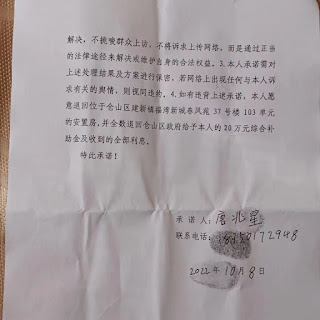 解决,不挑唆群众上访、不将诉求上传网络,而是通过正当
的法律途径来解决或维护自身的合法权益。3.本人承诺需对
上述处理结果及方案进行保密,若网络上出现任何与本人诉
求有关的舆情,则视同违约。4.如有违背上述承诺,本人愿
意退回位于仓山区建新镇福湾新城春风苑37号楼103单元
的安置房,并全数退回仓山区政府给予本人的20万元综合补
助金及收到的全部利息。
特此承诺!
承诺人:唐兆星
联系电话:18950172948
2022年10月8日